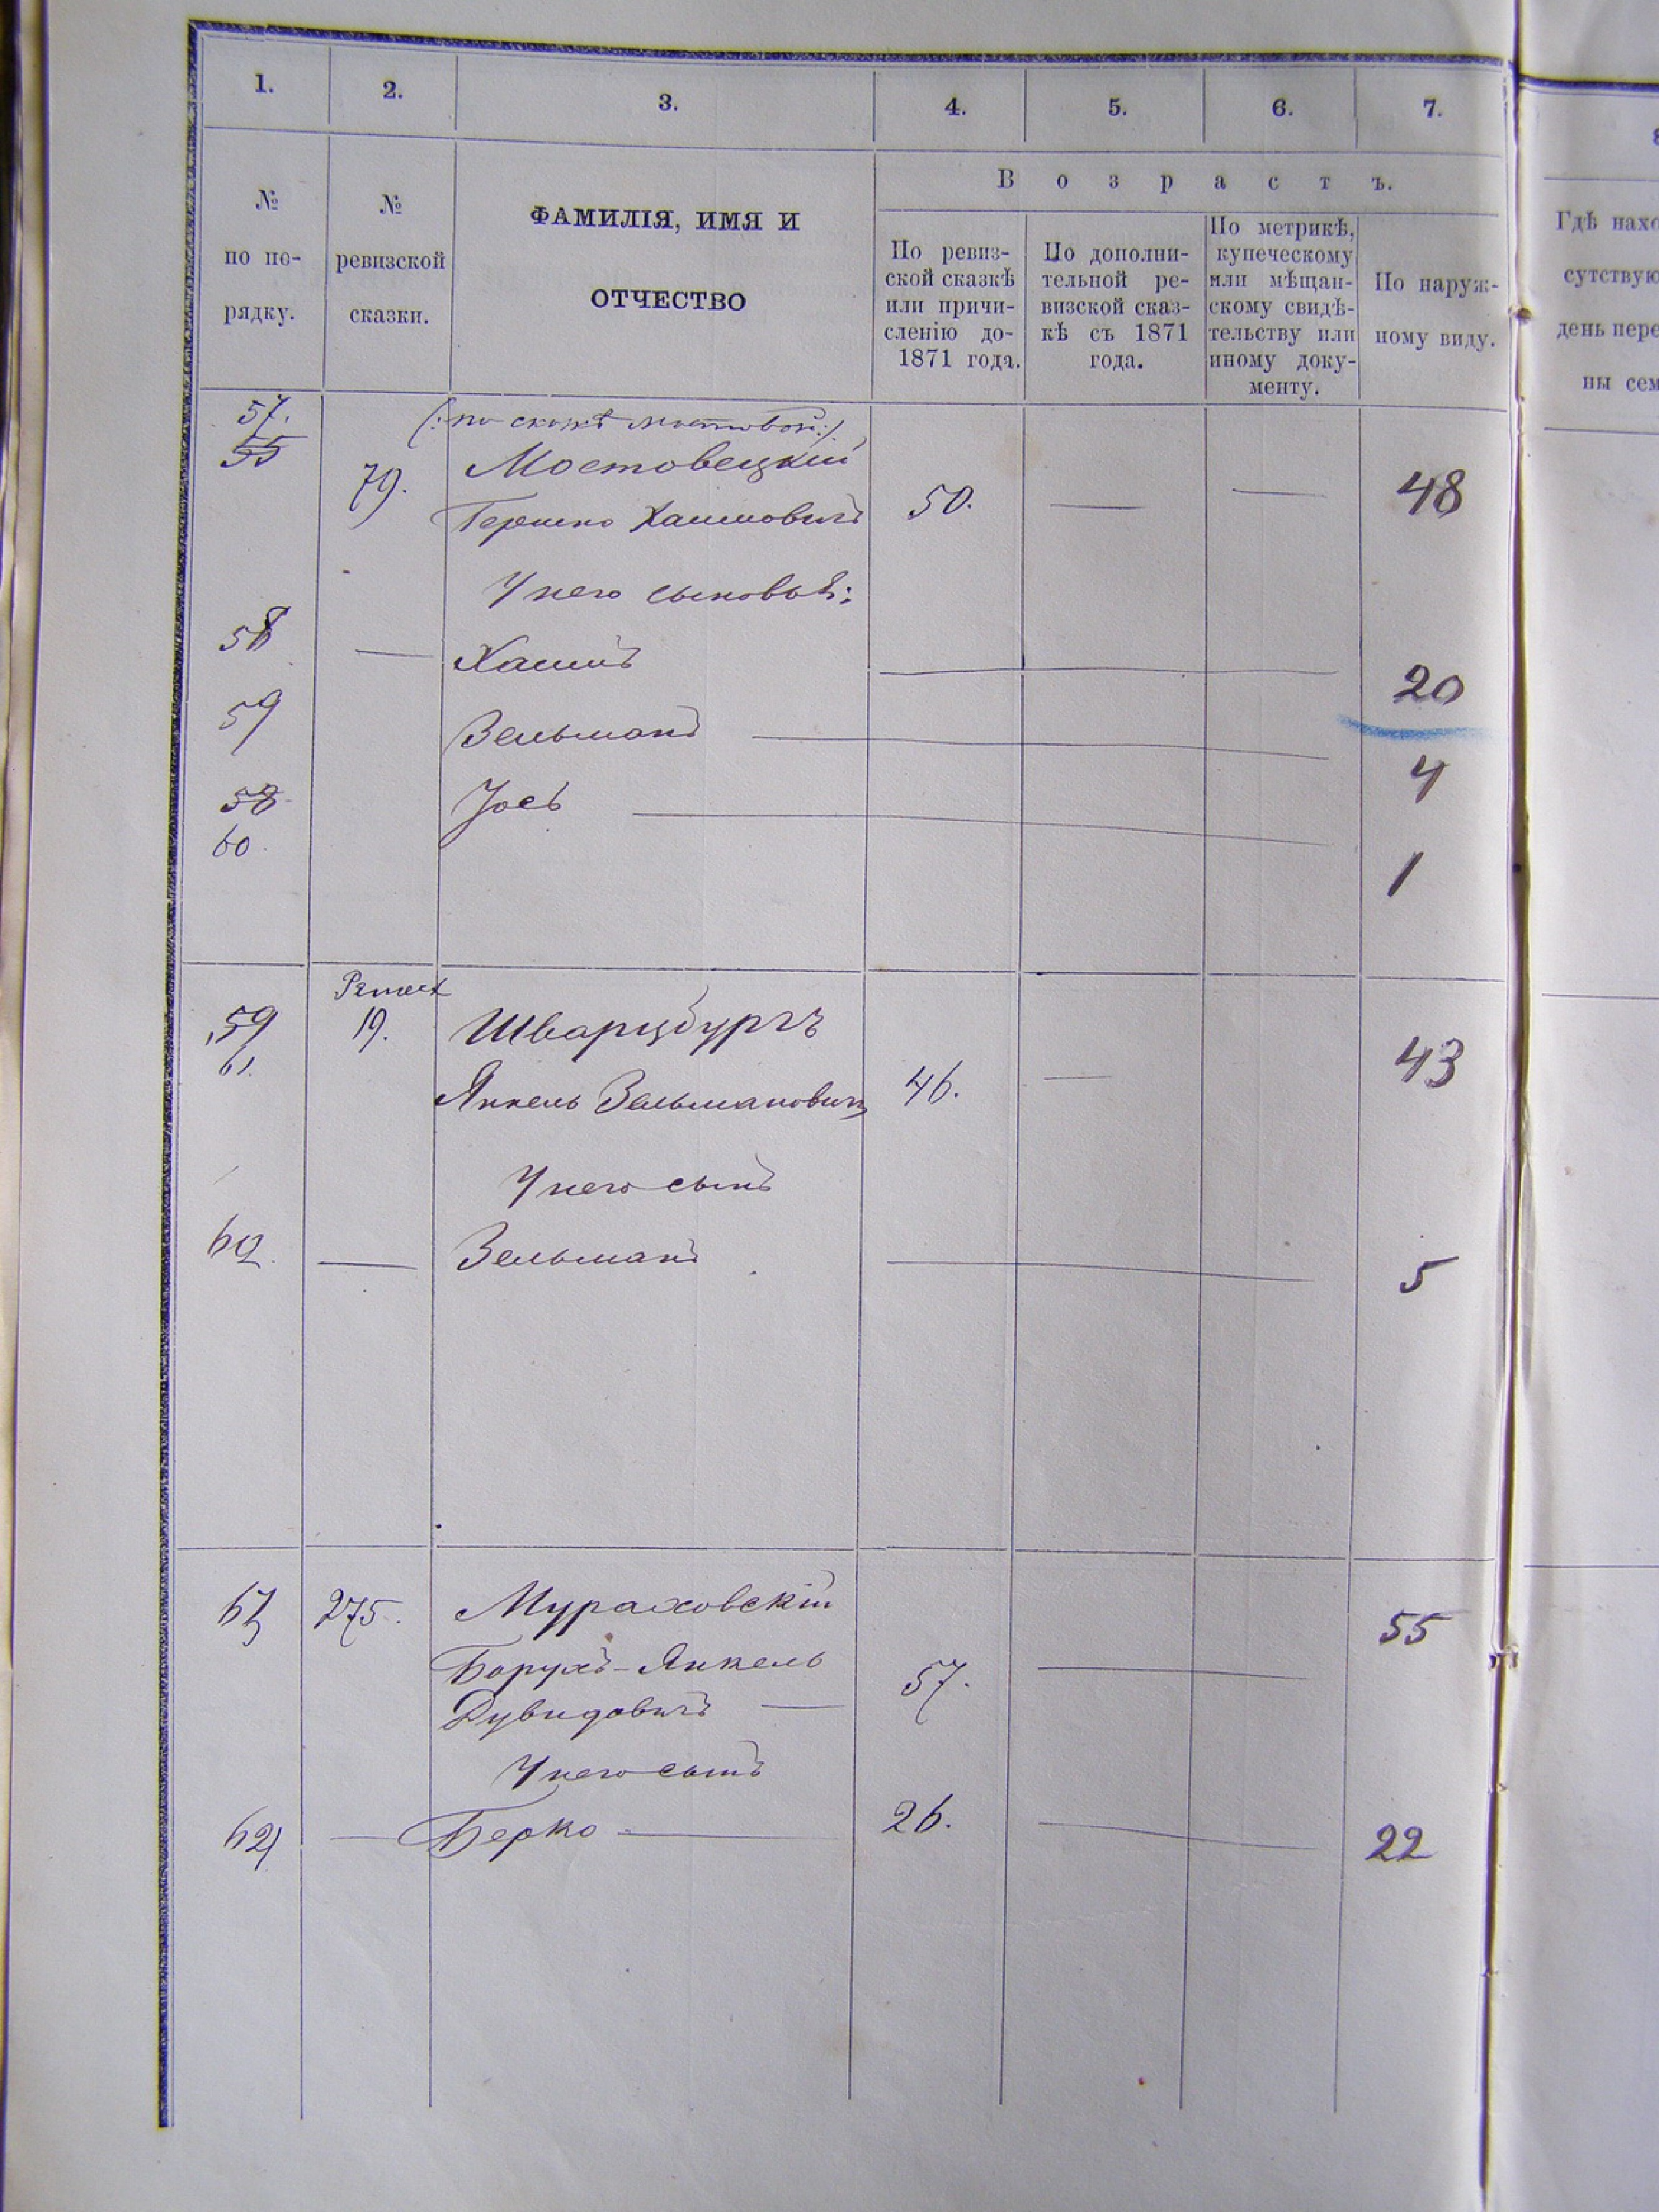 1.
2.
3.
4.
5.
6.
7.
№
по по-
рядку.
№
ревизской
сказки.
ФАМИЛІЯ, ИМЯ И
ОТЧЕСТВО
Возрастъ.
По ревиз-
ской сказкѣ
или причи-
сленію до-
1871 года.
По дополни-
тельной ре-
визской сказ-
кѣ съ 1871
года.
По метрикѣ,
купеческому
или мѣщан-
скому свидѣ-
тельству или
иному доку-
менту.
По наруж-
ному виду.
Гдѣ нахо
сутствую
день пере
ны сем
57.
55
(: по сказкѣ мостовой :)
79. Мостовецкій
Гершко Хаимовичъ 50. — — 48
У него сыновья:
58 — Хаимъ — 20
59 Зельманъ — 4
58 Іось — 1
60
59 19. Шварцбургъ 43
61.
Янкель Зельмановичъ 46. —
У него сынъ
62. — Зельманъ — 5
63 275. Мураховскій 55
Борухъ-Янкель 57. —
Дувидовичъ —
У него сынъ
— Берко — 26. — 22